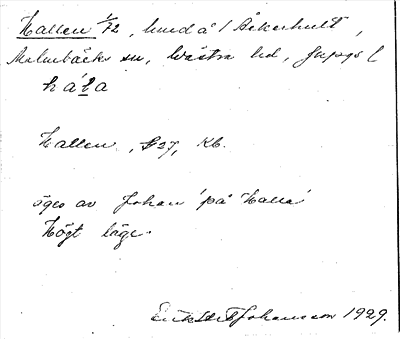 Hallen 1/12, hmd å 1 Åkerhult,
Malmbäcks sn, Västra hd, Jkpgs l
håla
Hallen, 527, Kb.
äges av Johan 'på Halla'
Högt läge.
Johansson 1929.